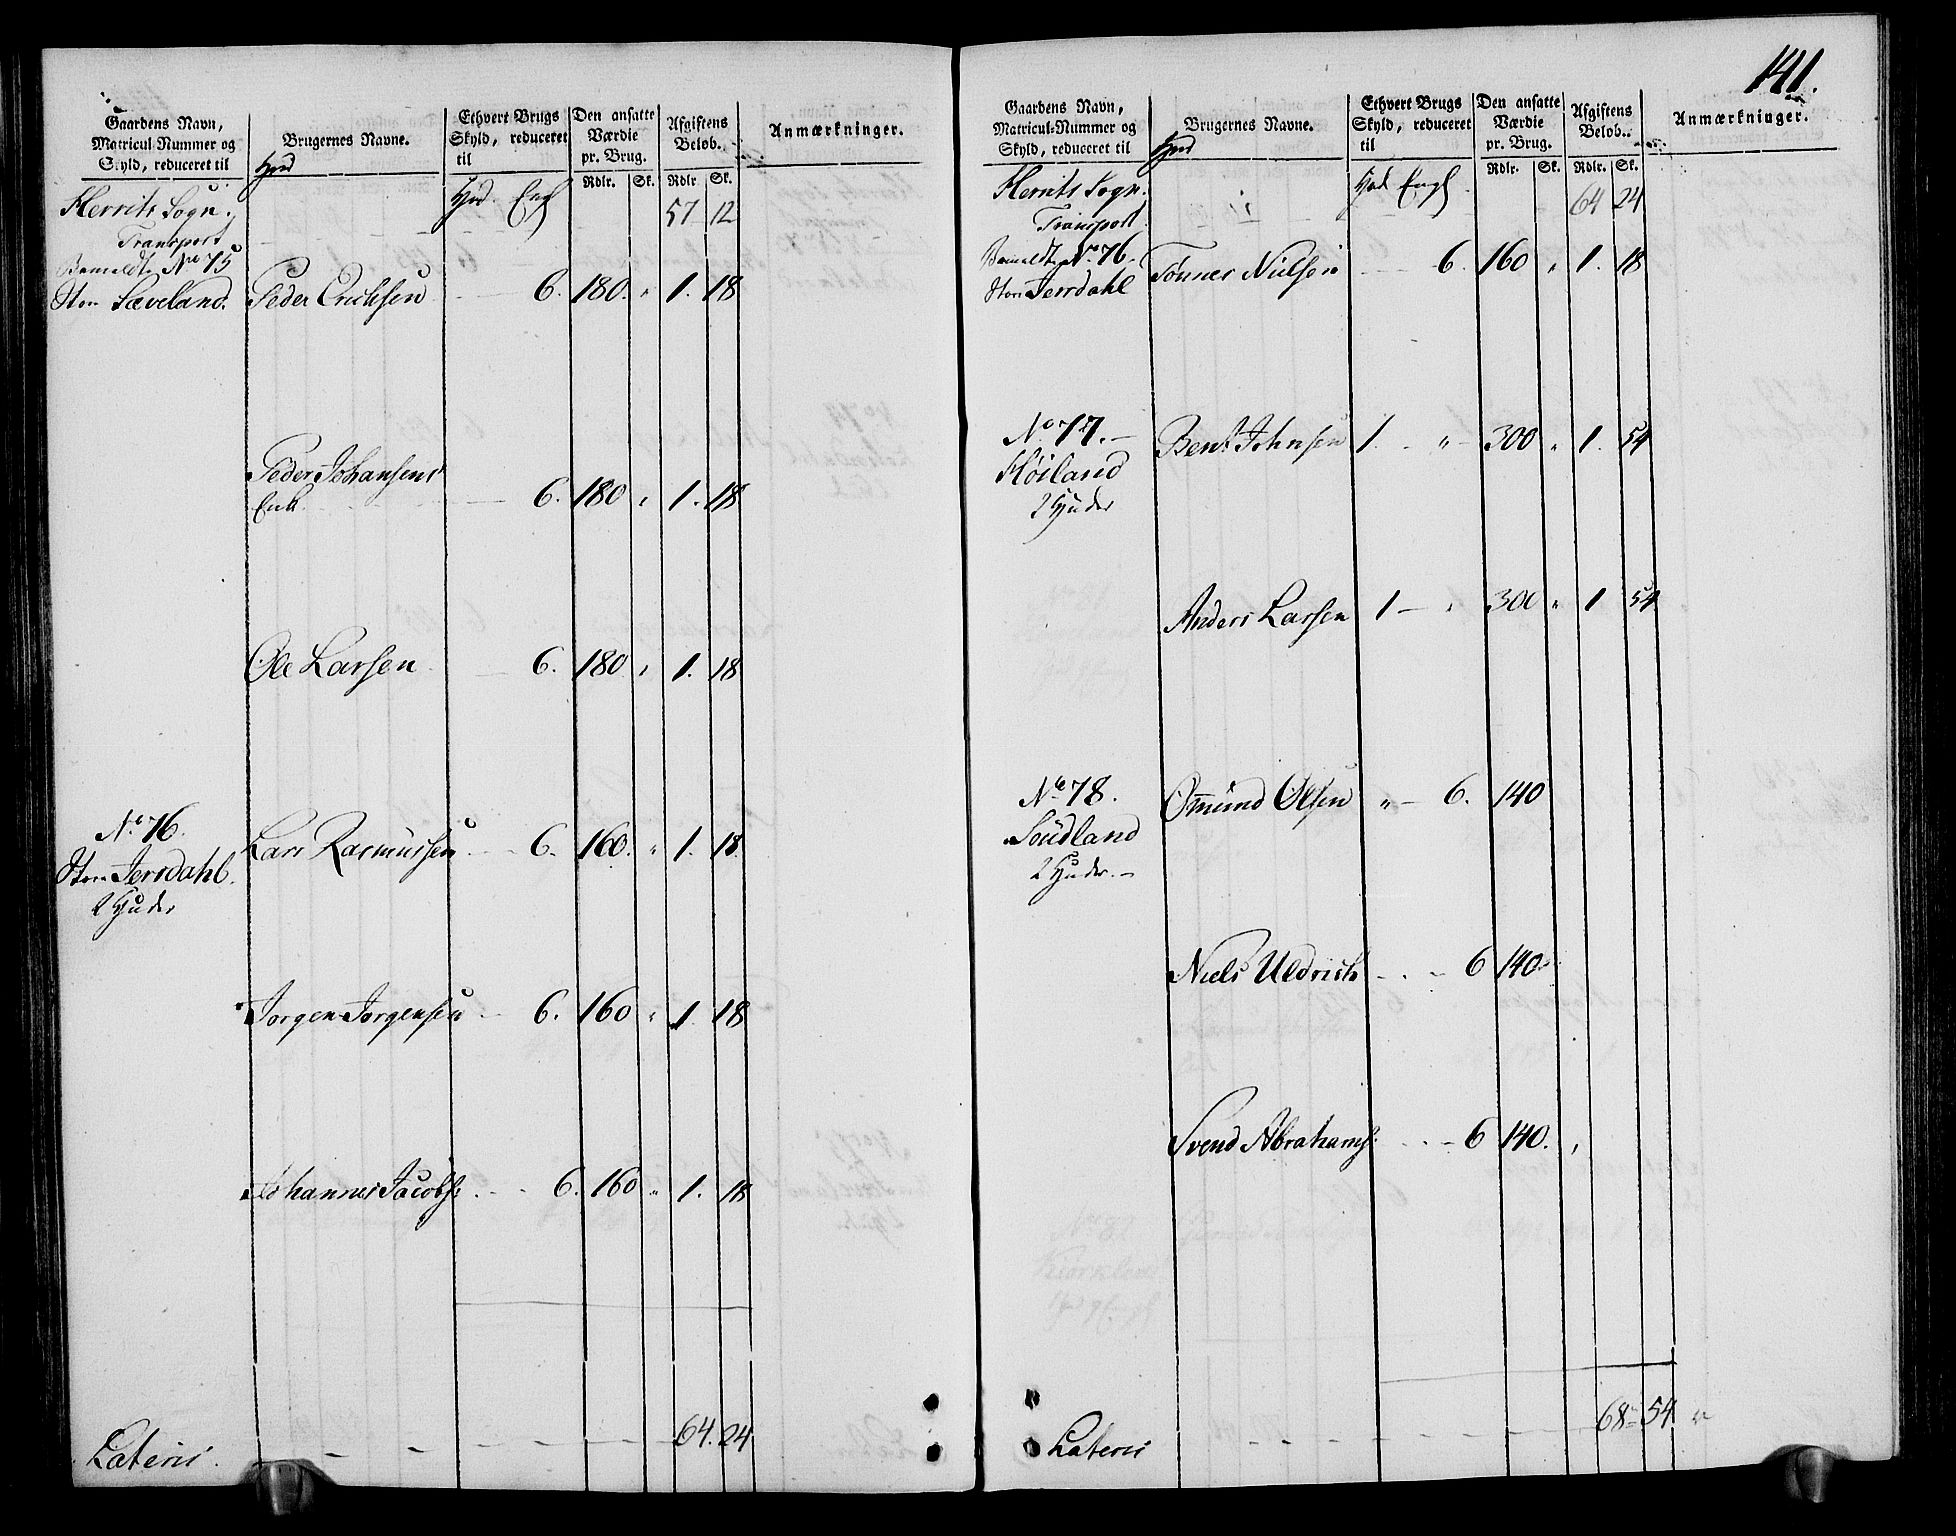 141.
Gaardens Navn,
Matricul-Nummer og
Skyld, reduceret til
Brugernes Navne.
Hud
Ethvert Brugs
Skyld, reduceret
til
Den ansatte
Værdie
pr. Brug.
Afgiftens
Beløb.
Anmærkninger.
Rdlr. Sk. Rdlr. Sk.
Herrits Sogn. Hud. Eng
Transport 57 12
No 75
Sæveland. Peder Erichsen 6. 180. " 1. 18
Peder Johansens
Enk. 6. 180 " 1. 18
Ole Larsen 6. 180 " 1. 18
No 76.
Jerrdahl. Lars Rasmussen 6. 160. " 1. 18.
2 Huder
Jorgen Jorgensen 6. 160 " 1. 18
Johannes Jacobs: 6. 160 " 1. 18
Lateris 64. 24
Gaardens Navn,
Matricul-Nummer og
Skyld, reduceret til
Brugernes Navne.
Hud
Ethvert Brugs
Skyld, reduceret
til
Den ansatte
Værdie
pr. Brug.
Afgiftens
Beløb.
Anmærkninger.
Rdlr. Sk. Rdlr. Sk.
Herrits Sogn. Hud Engl
Transport 64 24
No 76.
Jerrdahl Tønnes Nielsen 6. 160 " 1. 18
No 77. Bent Johnsen 1. " 300 " 1. 54
Høiland
2 Huder
Anders Larsen 1 " 300 " 1 54
No 78. Omund Olsen " 6. 140
Soudland
2 Huder.
Niels Uldrich 6 140
Svend Abrahams: 6 140.
Lateris 68 54